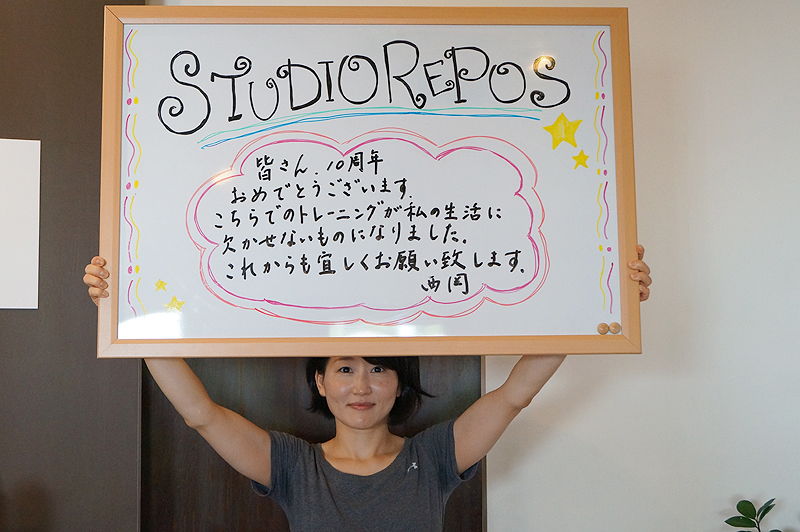 STUDIO REPOS
皆さん、10周年
おめでとうございます。
こちらでのトレーニングが私の生活に
欠かせないものになりました。
これからも宜しくお願い致します。
西岡